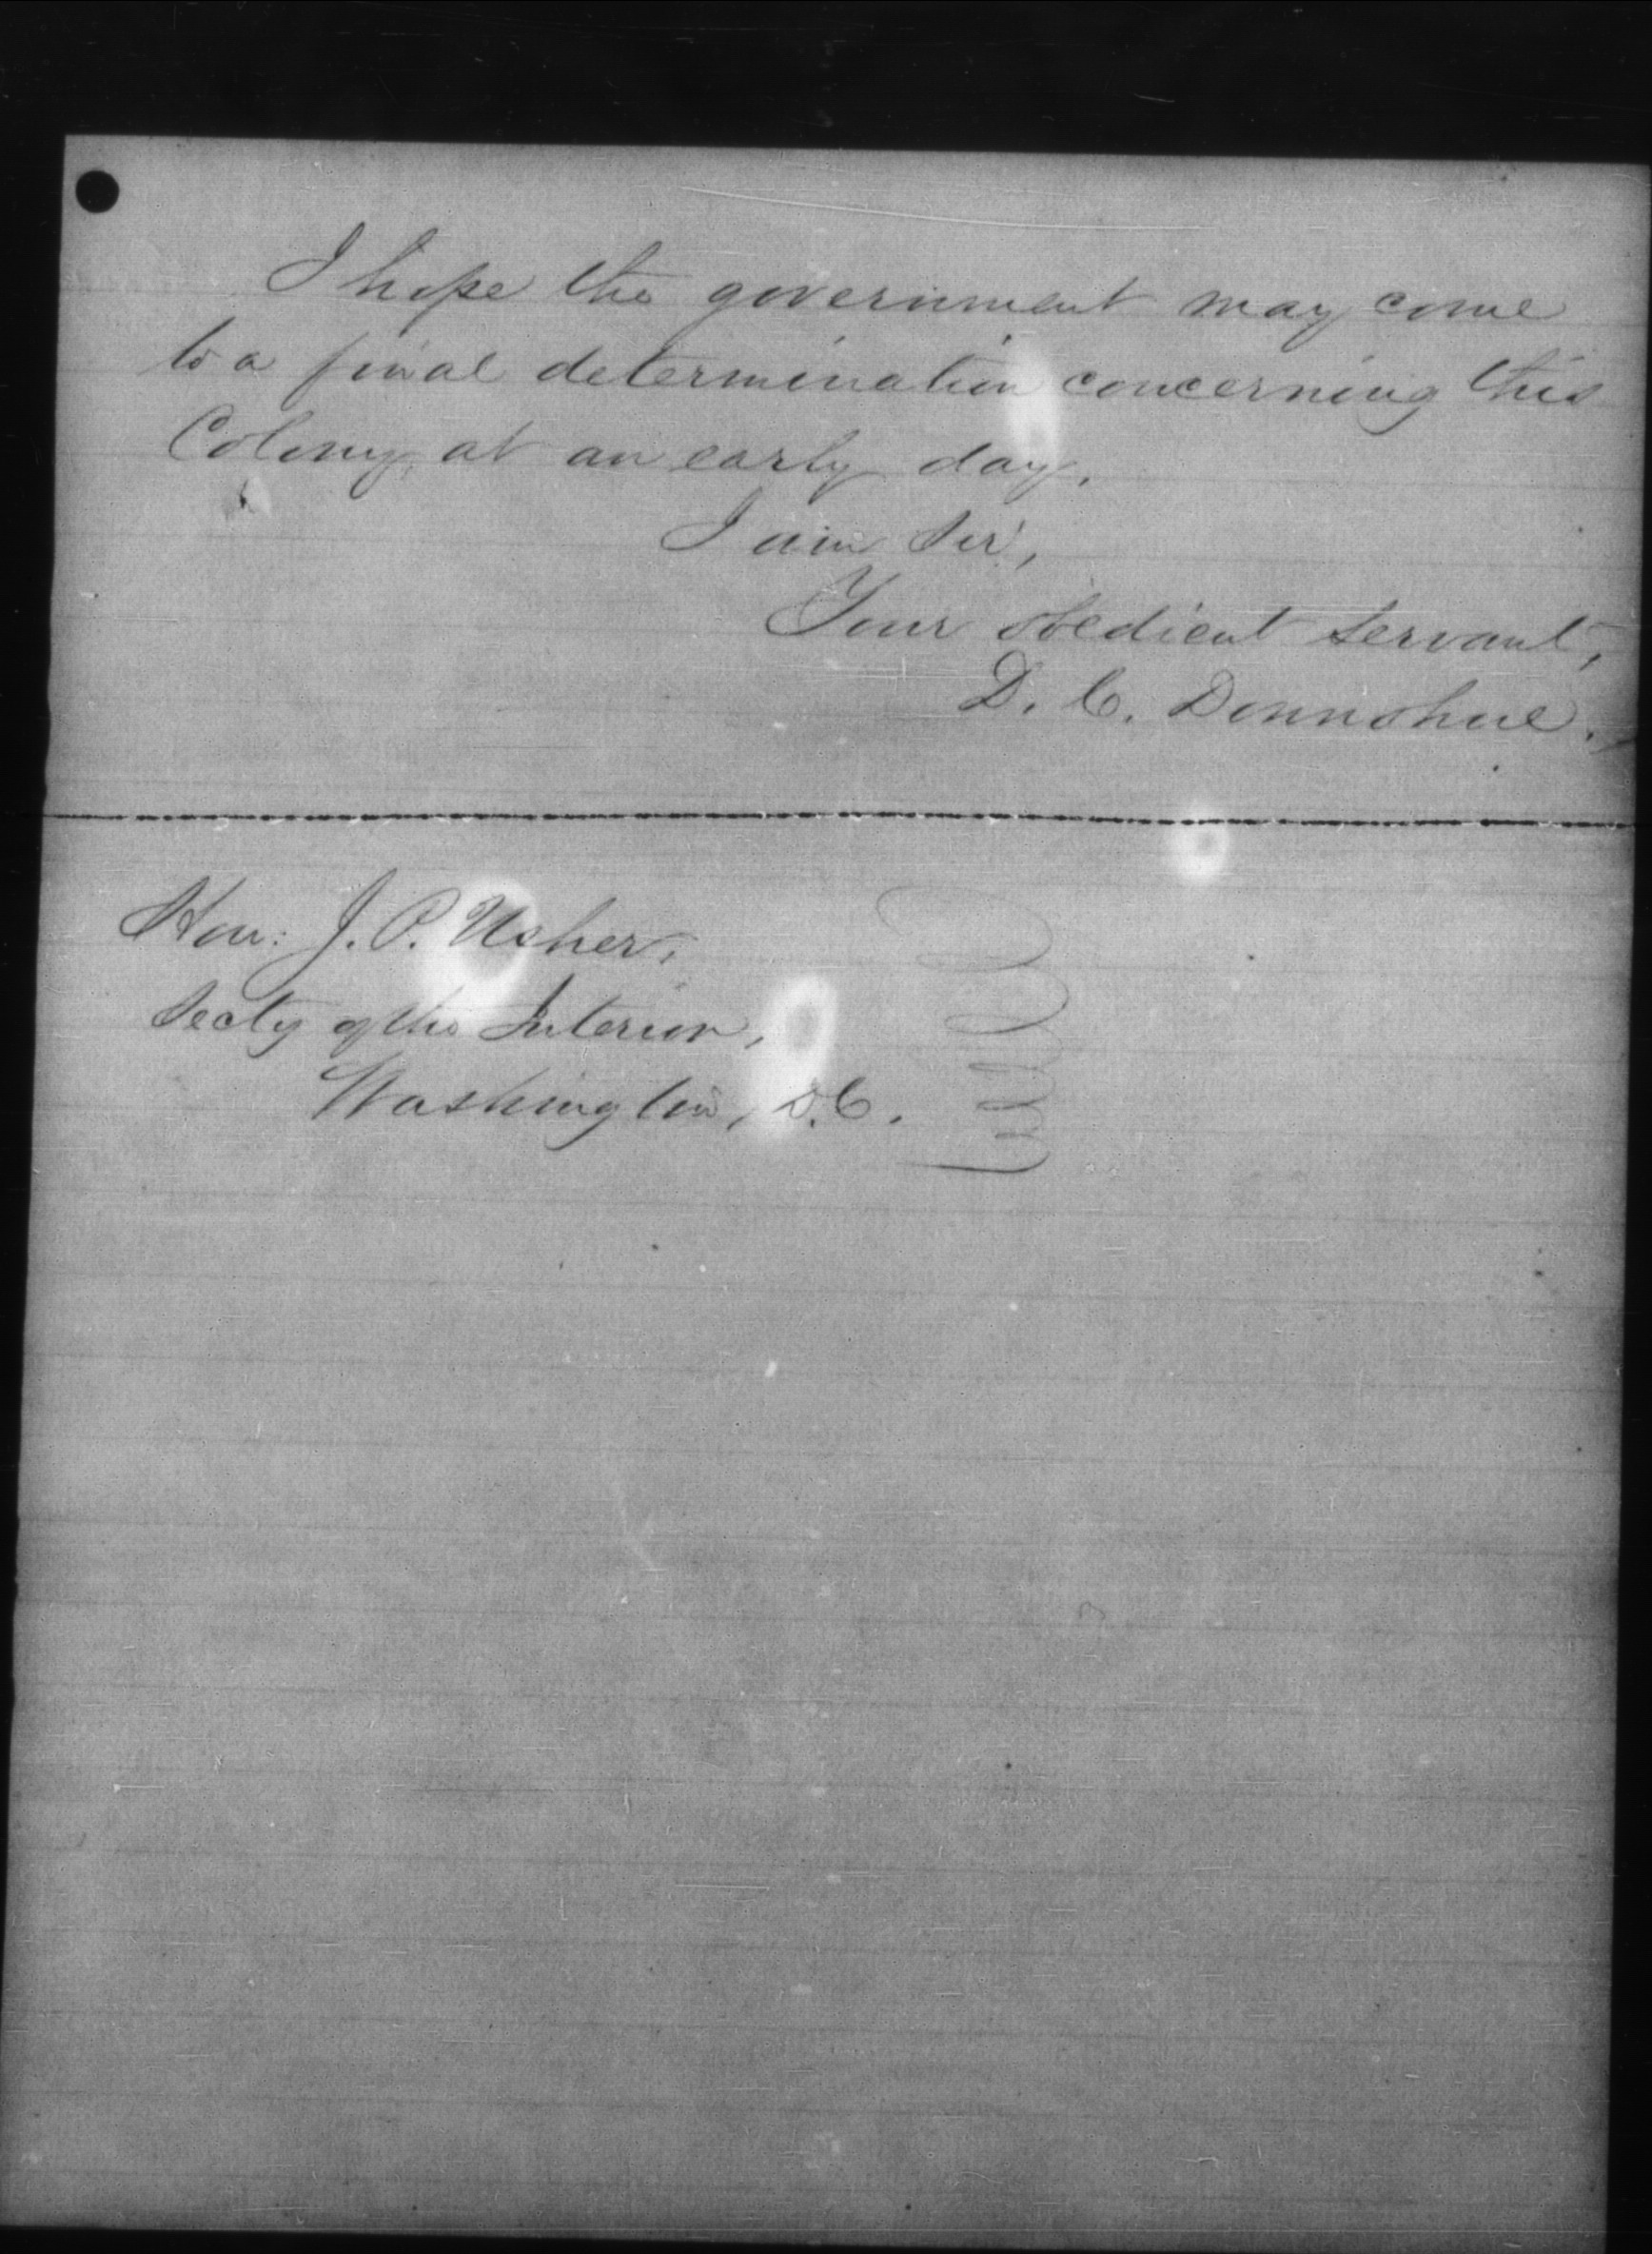 I hope the government may come
to a final determination concerning this
Colony, at an early day.
I am Sir,
Your obedient servant,
D. C. Donnohue.
Hon: J. P. Usher,
Secty of the Interior,
Washington, D.C.